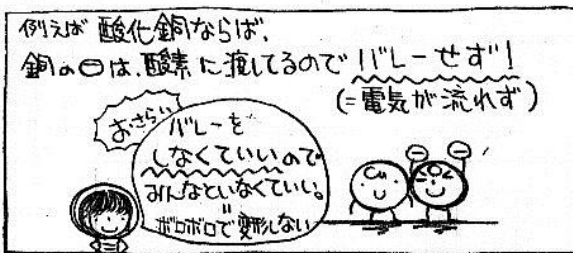 例えば 酸化銅ならば、
銅の⊖は、酸素に渡してるので バレーせず!
(=電気が流れず)
おさらい
バレーを
しなくていいので
みんなといなくていい。
=
ボロボロで変形しない
Cu
O
⊖ ⊖